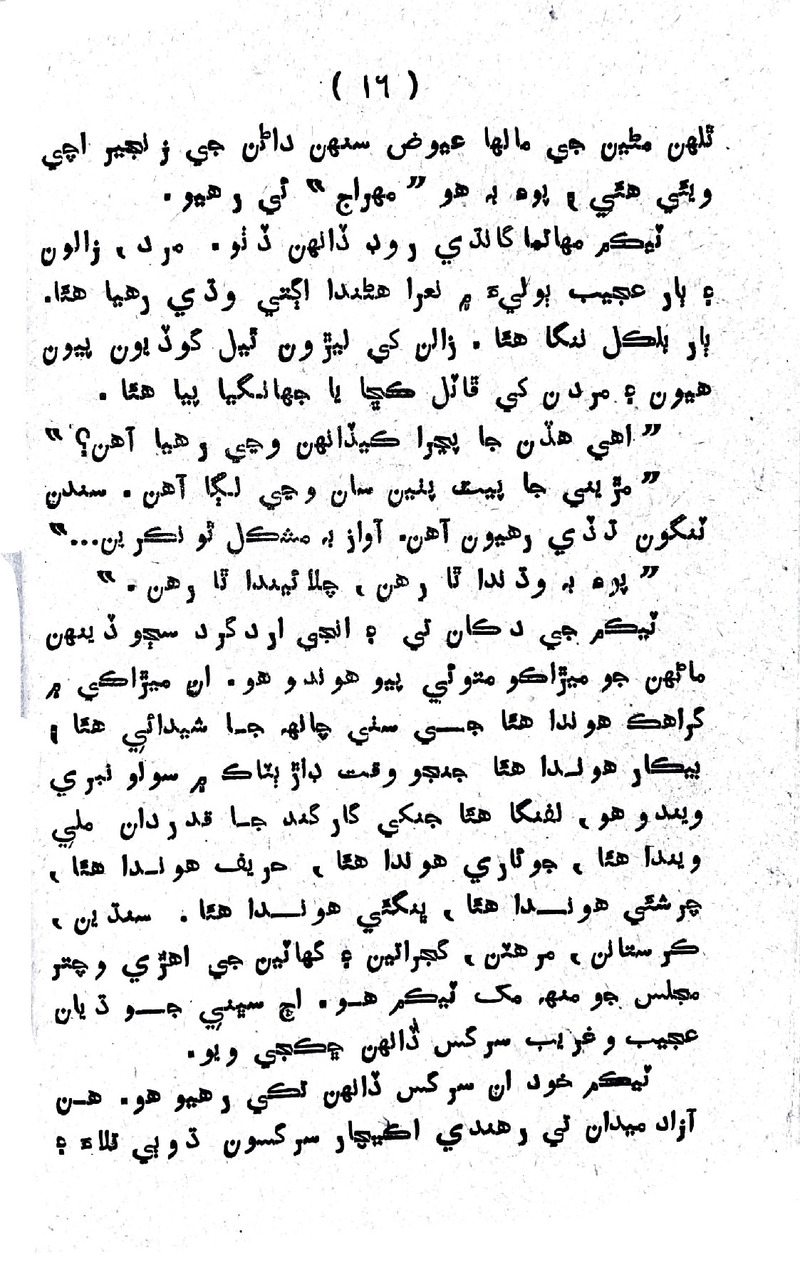 ( ١٦ )
ٿلهن مڻين جي مالها عيوض سنهن داڻن جي زنجير اچي
ويئي هئي ۽ پوءِ بہ هو ”مهراج“ ئي رهيو.
ٽيڪم مهاتما گانڌي روڊ ڏانهن ڏٺو. مرد، زالون
۽ ٻار عجيب ٻوليءَ ۾ نعرا هڻندا اڳتي وڌي رهيا هئا.
ٻار بلڪل ننگا هئا. زالن کي ليڙون ٿيل گوڏيون پيون
هيون ۽ مردن کي ڦاٽل ڪڇا يا جهانگيا پيا هئا.
”اهي هڏن جا پڃرا ڪيڏانهن وڃي رهيا آهن؟“
”مڙيني جا پيٽ پٺين سان وڃي لڳا آهن. سندن
ٽنگون ٿڏي رهيون آهن. آواز بہ مشڪل ٿو نڪرين...“
”پرہ بہ وڌندا ٿا رهن، چلائيندا ٿا رهن.“
ٽيڪم جي دڪان تي ۽ انجي اردگرد سڄو ڏينهن
ماڻهن جو ميڙاڪو متوئي پيو هوندو هو. ان ميڙاڪي ۾
گراهڪ هوندا هئا جي سٺي چانهہ جا شيدائي هئا ۽
بيڪار هوندا هئا جنجو وقت ڊاڙ ٻٽاڪ ۾ سولو نبري
ويندو هو، لفنگا هئا جنکي گارگند جا قدردان ملي
ويندا هئا، جوئاري هوندا هئا، حريف هوندا هئا،
چرشئي هوندا هئا، ڀنگئي هوندا هئا. سنڌين،
ڪرستانن، مرهٽن، گجراتين ۽ گهاٽين جي اهڙي وچتر
مجلس جو منهہ مک ٽيڪم هو. اڄ سڀني جو ڌيان
عجيب و غريب سرگس ڏانهن ڇڪجي ويو.
ٽيڪم خود ان سرگس ڏانهن تڪي رهيو هو. هن
آزاد ميدان تي رهندي اڪيچار سرگسون ڌوٻي تلاءَ ۽